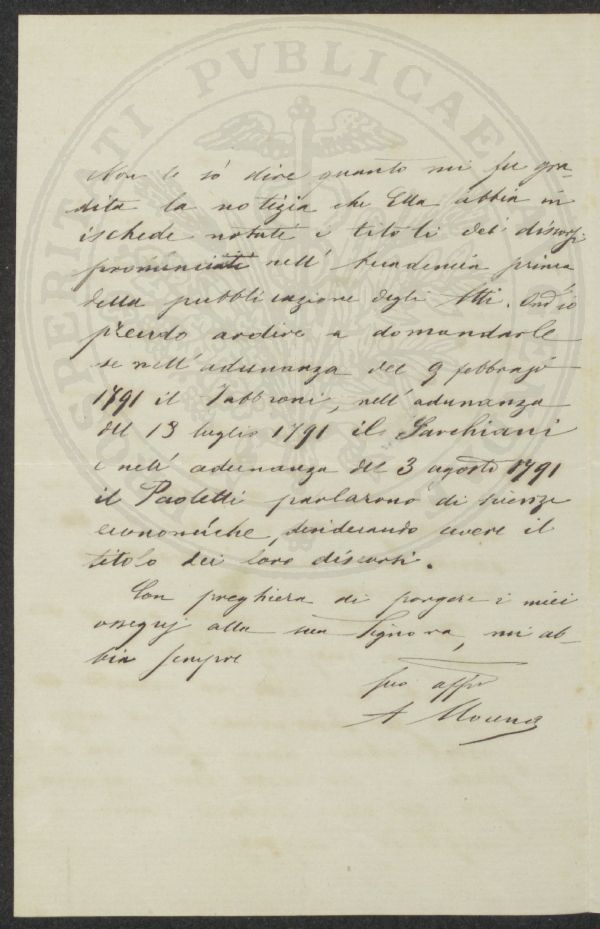 PROSPERITATI PVBLICAE
Non le sò dire quanto mi fu gra-
dita la notizia che Ella abbia in
ischede notati i titoli dei discorsi
pronunciati nell' Accademia prima
della pubblicazione degli Atti. Ond'io
prendo ardire a domandarle
se nell' adunanza del 9 febbrajo
1791 il Fabbroni, nell' adunanza
del 13 luglio 1791 il Sarchiani
e nell' adunanza del 3 agosto 1791
il Paoletti parlarono di scienze
economiche, desiderando avere il
titolo dei loro discorsi.
Con preghiera di porgere i miei
ossequj alla sua Signora, mi ab-
bia sempre
suo affmo
A Morena